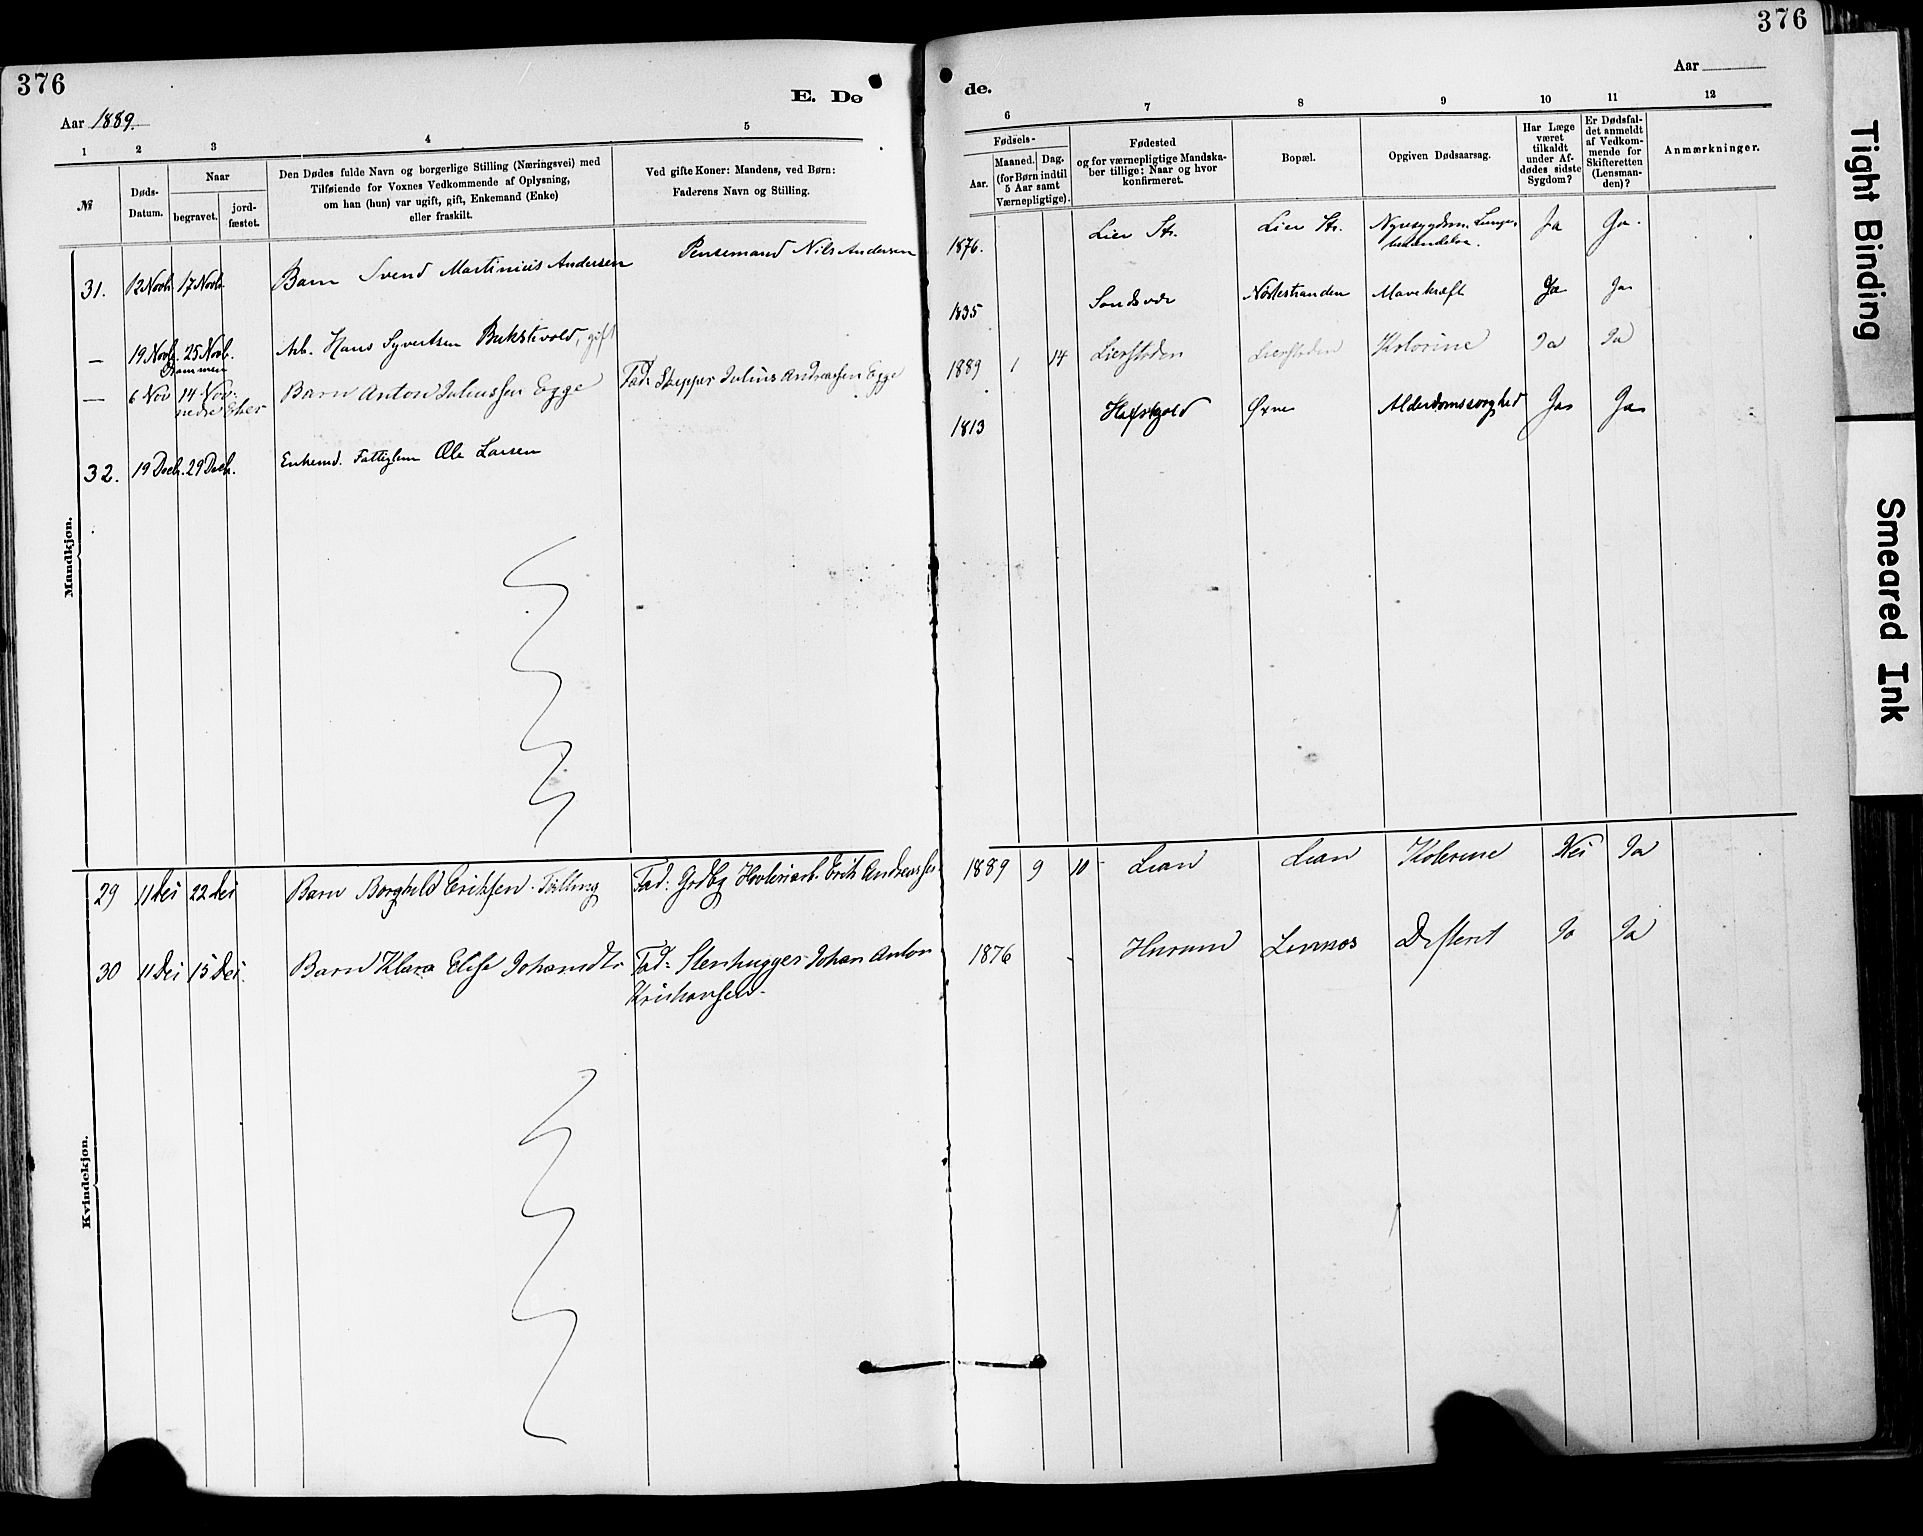 376
376
Aar 1889.
E. Dø
de.
Aar
1
2
3
4
5
6
7
8
9
10
11
12
№
Døds-
Datum.
Naar
begravet.
jord-
fæstet.
Den Dødes fulde Navn og borgerlige Stilling (Næringsvei) med
Tilføiende for Voxnes Vedkommende af Oplysning,
om han (hun) var ugift, gift, Enkemand (Enke)
eller fraskilt.
Ved gifte Koner: Mandens, ved Børn:
Faderens Navn og Stilling.
Fødsels-
Aar.
Maaned.
Dag.
(for Børn indtil
5 Aar samt
Værnepligtige).
Fødested
og for værnepligtige Mandska-
ber tillige: Naar og hvor
konfirmeret.
Bopæl.
Opgiven Dødsaarsag.
Har Læge
været
tilkaldt
under Af-
dødes sidste
Sygdom?
Er Dødsfal-
det anmeldt
af Vedkom-
mende for
Skifteretten
(Lensman-
den)?
Anmærkninger.
Mandkjøn.
31. 12 Novb. 17 Novb. Barn Svend Martinius Andersen Pensemand Nils Andersen 1876. Lier Str. Lier Str. Nyresygdom, Lunge-
betændelse. Ja Ja.
— 19 Novb. 25 Novb. Arb. Hans Syvertsen Bukstivold, gift 1835 Sandsvær Nöstestranden Mavekræft Ja Ja
Drammen
— 6 Nov 14 Nov. Barn Anton Juliussen Egge Fad: Skipper Julius Andreassen Egge 1889 1 14 Lierstroden Lierstroden Kolorine Ja Ja
nedre Eker
32. 19 Decb. 29 Decb. Enkemd. Fattiglem Ole Larsen 1813 Hafskjold Øxne Alderdomssvaghed Ja Ja
Kvindekjøn.
29 11 Des 22 Des Barn Borghild Eriksen Tilling Fad: Grdbg Høvleriarb. Erik Andreassen 1889 9 10 Lian Lian Kolerine Nei Ja
30 11 Des 15 Des. Barn Klara Elise Johansdtr Fad: Stenhugger Johan Anton 1876 Hurum Linnes Difterit Ja Ja
Kristiansen.
Tight Binding
Smeared Ink